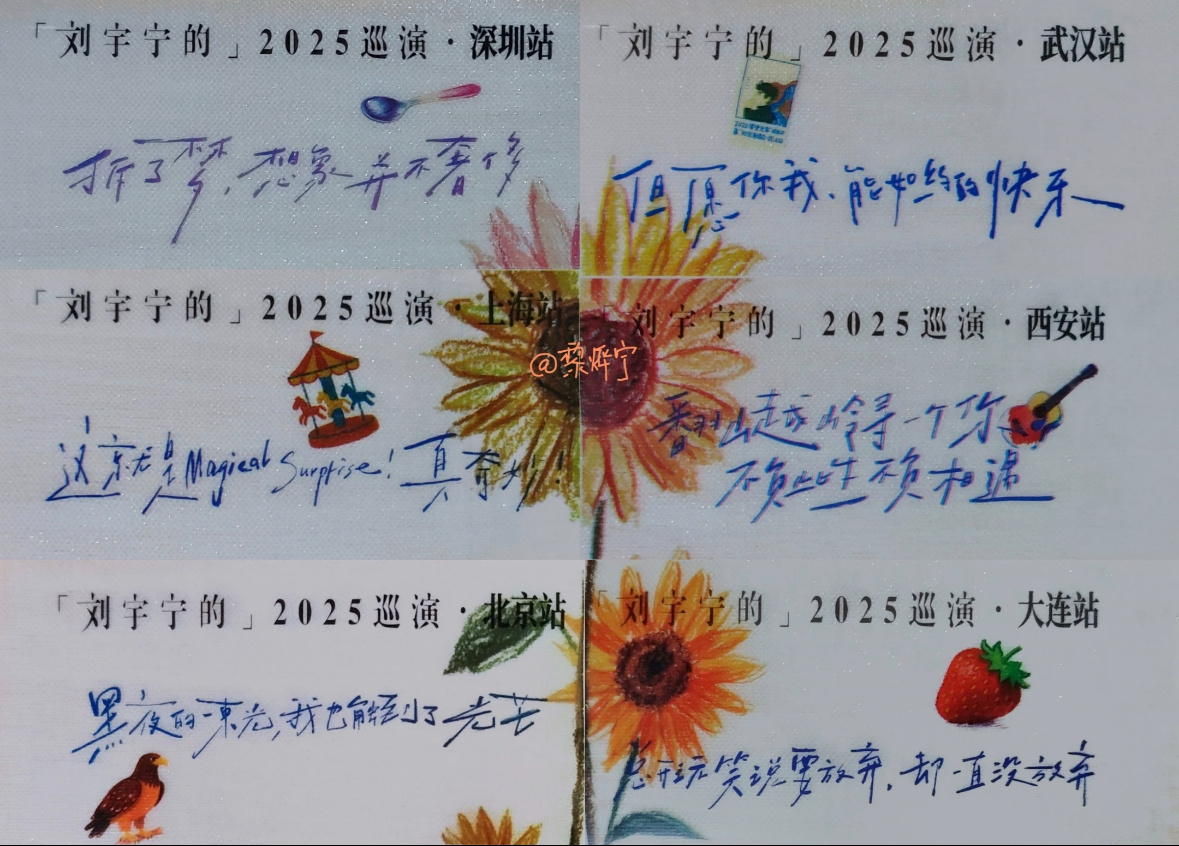 「刘宇宁的」2025巡演·深圳站
拆了梦,想象并不奢侈
「刘宇宁的」2025巡演·武汉站
但愿你我、能如约的快乐
「刘宇宁的」2025巡演·上海站
这就是Magical Surprise!真奇妙!
「刘宇宁的」2025巡演·西安站
翻山越岭寻一个你
不负此生不负相遇
@黎烨宁
「刘宇宁的」2025巡演·北京站
黑夜的一束光,我也到了光芒
「刘宇宁的」2025巡演·大连站
总开玩笑说要放弃,却一直没放弃